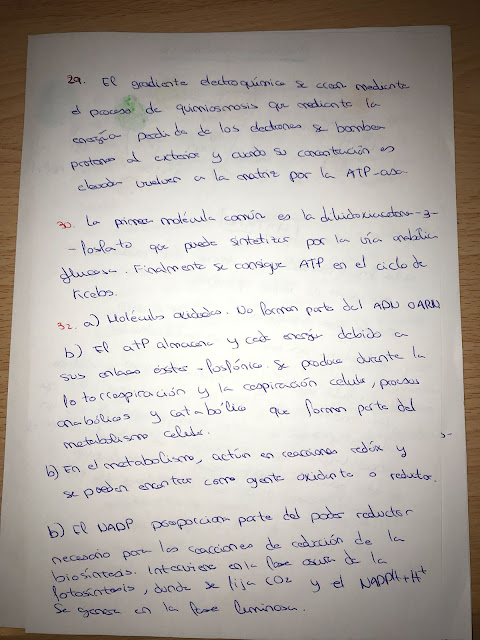 29. El gradiente electroquímico se crean mediante
el proceso de quimiosmosis que mediante la
energía perdida de los electrones se bombea
protones al exterior y cuando su concentración es
elevada vuelven a la matriz por la ATP-asa
30. La primera molécula común es la dihidroxiacetona-3-
-fosfato que puede sintetizar por la vía anabólica
glucosa. Finalmente se consigue ATP en el ciclo de
Krebs.
32. a) Moléculas oxidadas. No forman parte del ADN o ARN
b) El ATP almacena y cede energía debido a
sus enlaces éster-fosfónico. Se produce durante la
fotorrespiración y la respiración celular, procesos
anabólicos y catabólico que forman parte del
metabolismo celular.
b) En el metabolismo, actúan en reacciones redóx y
se pueden encontrar como agente oxidante o reductor.
b) El NADP proporciona parte del poder reductor
necesario para las reacciones de reducción de la
biosíntesis. Interviene en la fase oscura de la
fotosíntesis, donde se fija CO2 y el NADPH+H+
se genera en la fase luminosa.